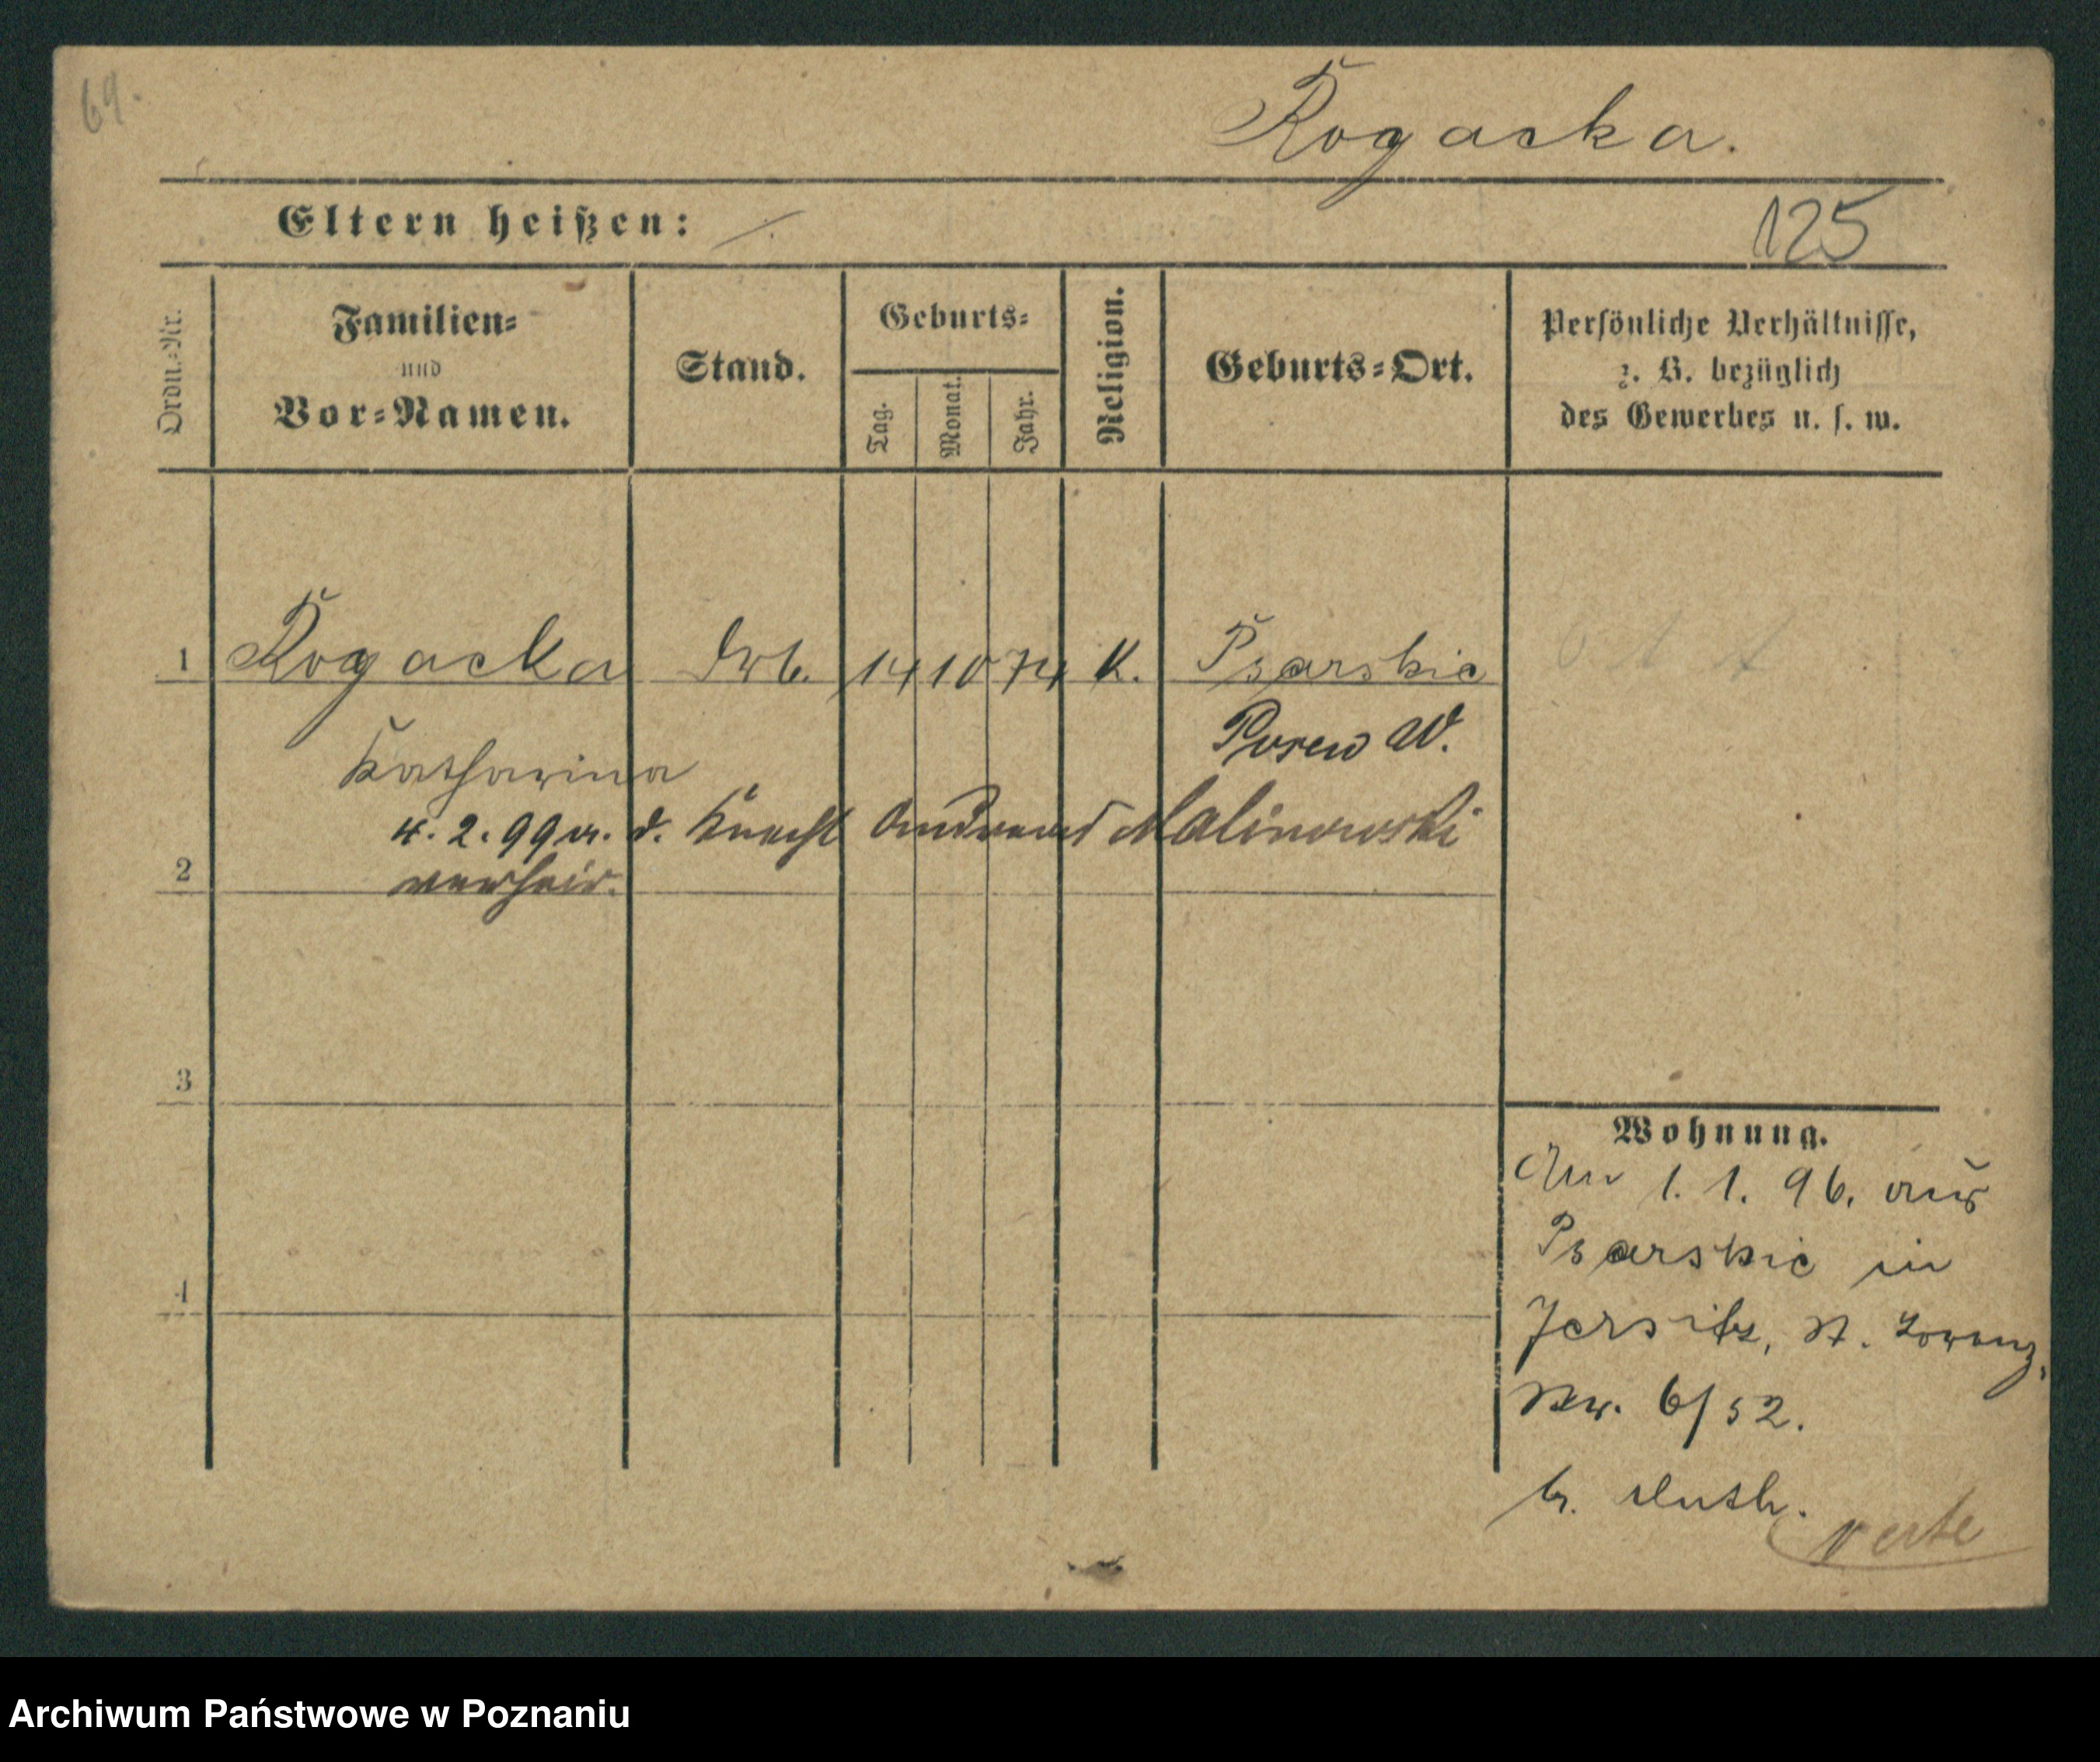 69.
Rogacka.
Eltern heißen: /.
125
Ordn.-Nr.
Familien-
und
Vor-Namen.
Stand.
Geburts-
Tag.
Monat.
Jahr.
Religion.
Geburts-Ort.
Persönliche Verhältnisse,
z. B. bezüglich
des Gewerbes u. s. w.
1 Rogacka Arb. 14 10 74 K. Psarskie
Posen W.
Katharina
4. 2. 99 m. d. Knecht Andreas Malinowski
2 verheir.
3
4
Wohnung.
Am 1. 1. 96. aus
Psarskie in
Jersitz, St. Lorenz.
Nr. 6/52.
b. Muth.
verte
Archiwum Państwowe w Poznaniu